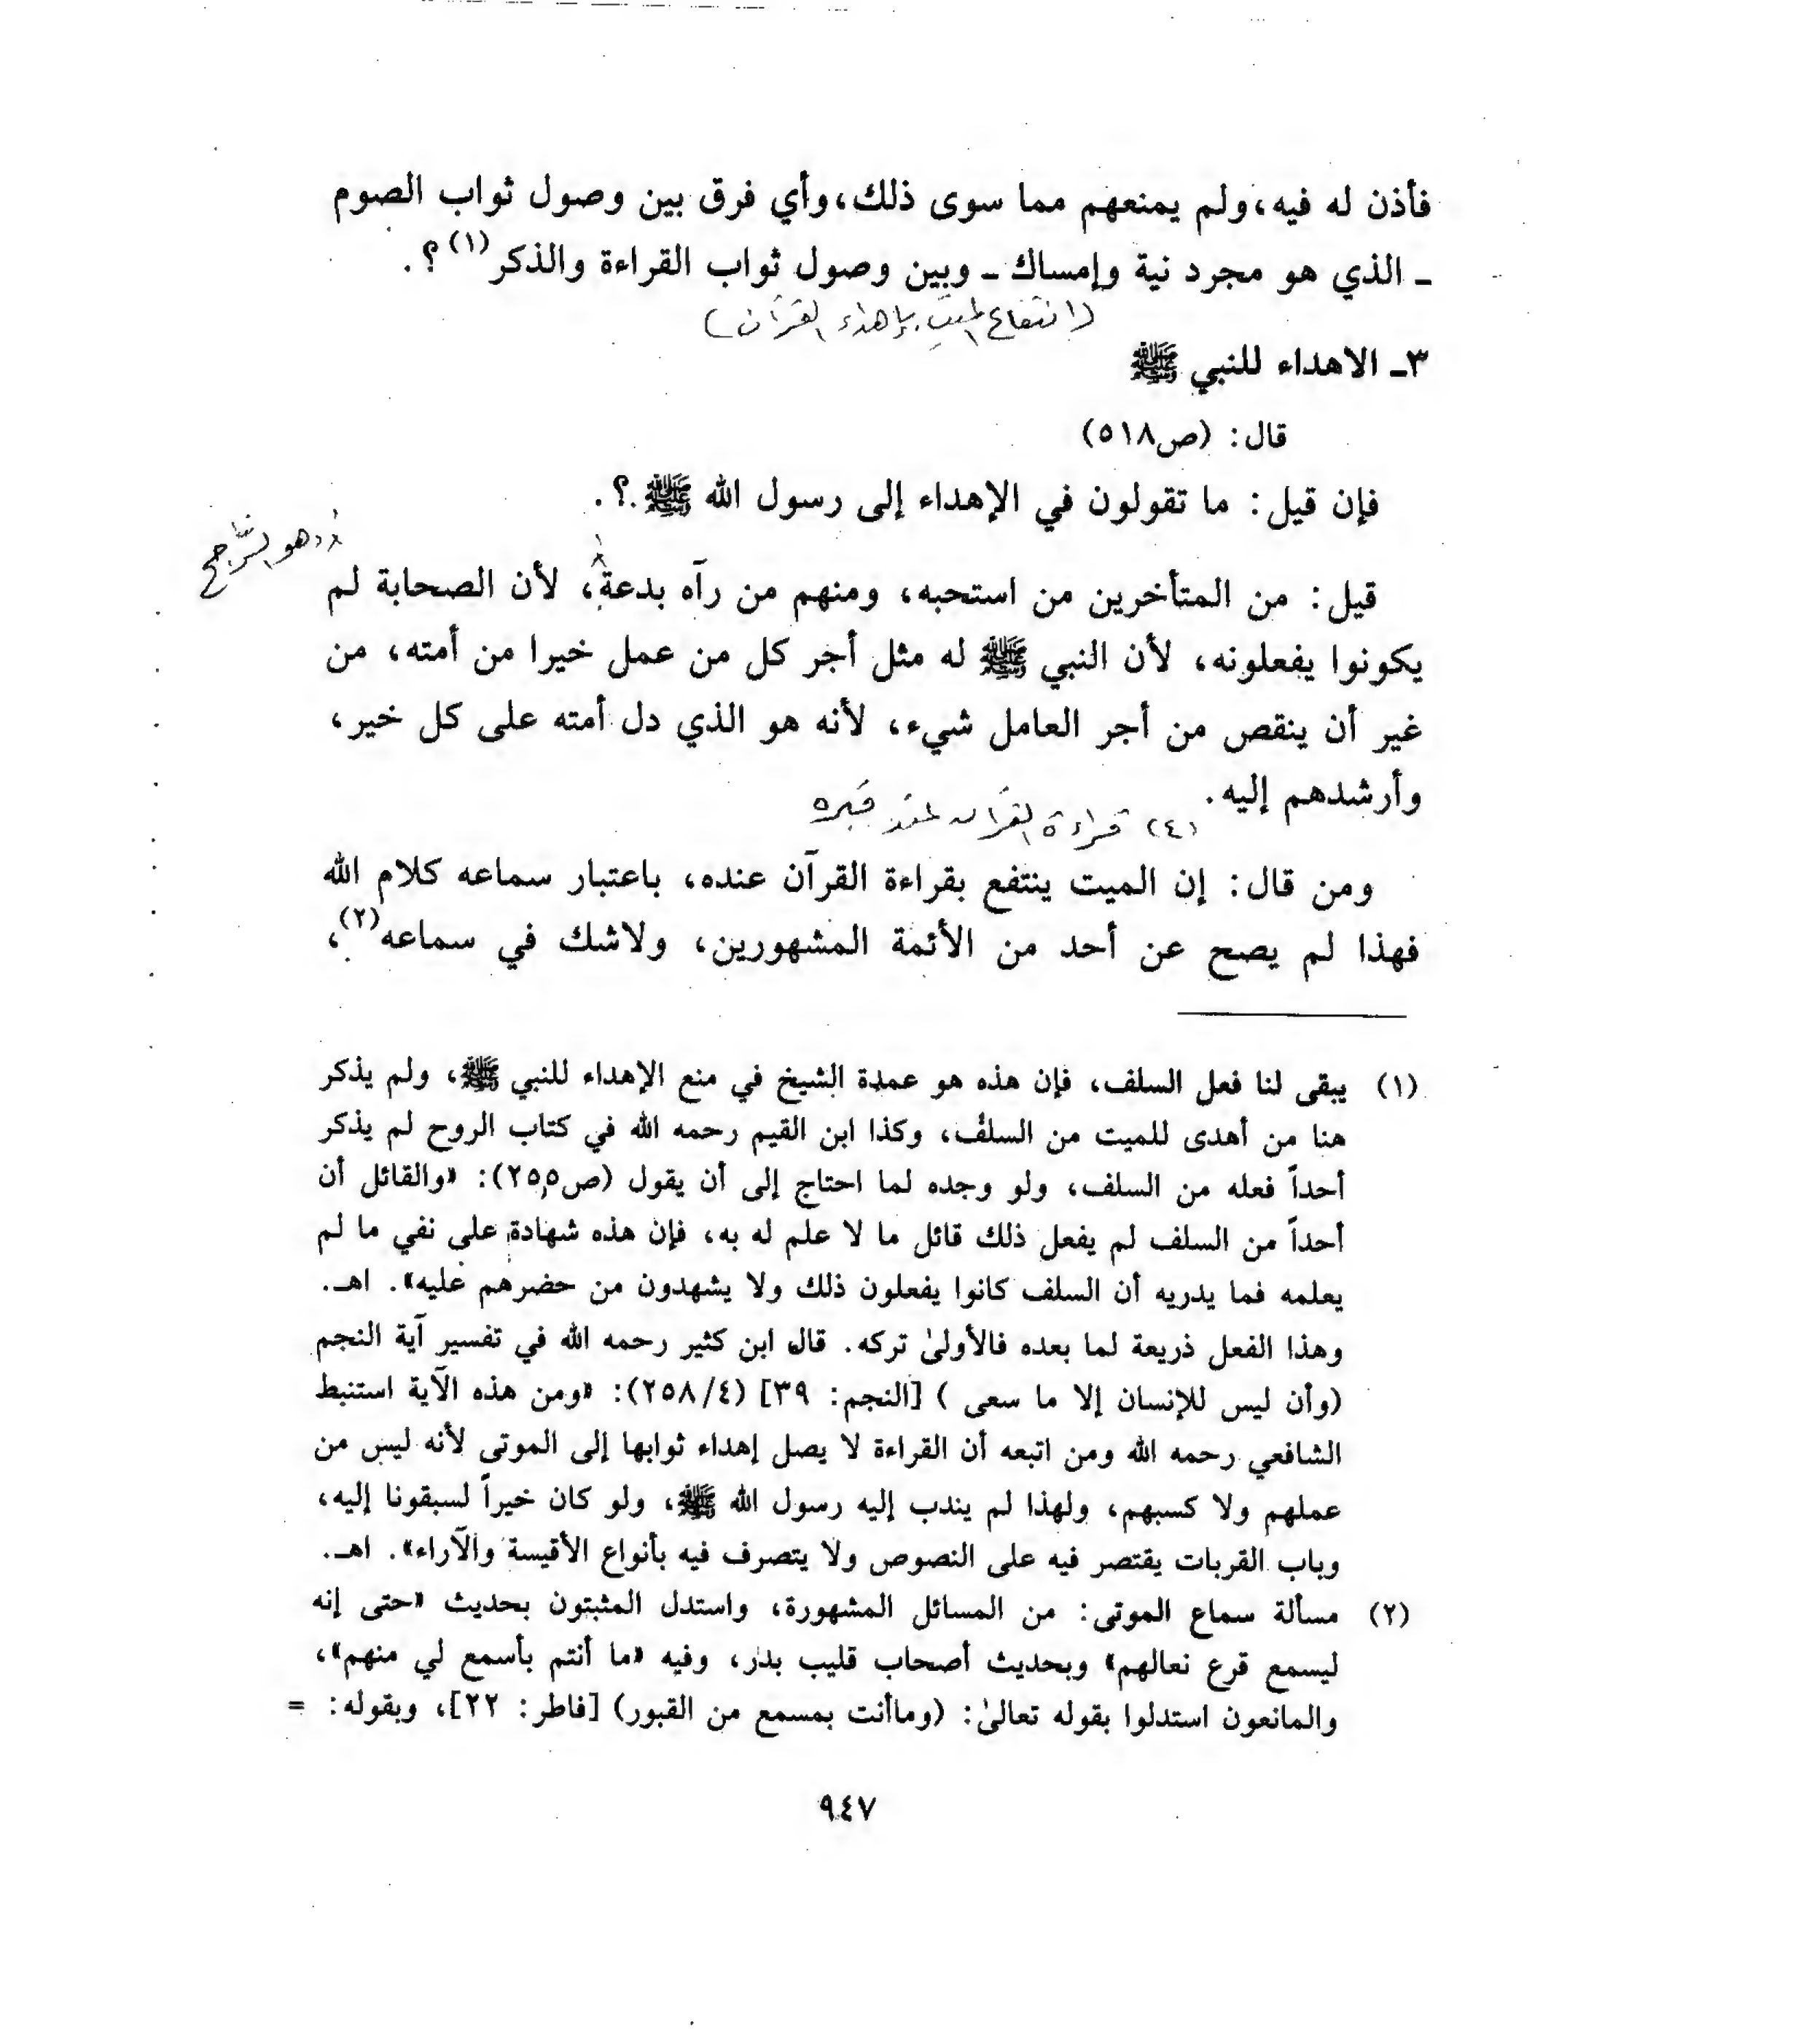 فأذن له فيه، ولم يمنعهم مما سوى ذلك، وأي فرق بين وصول ثواب الصوم
ـ الذي هو مجرد نية وإمساك ـ وبين وصول ثواب القراءة والذكر(١)؟ .
(انتفاع الميت بإهداء القرآن)
٣ـ الاهداء للنبي ﷺ
قال: (ص٥١٨)
فإن قيل: ما تقولون في الإهداء إلى رسول الله ﷺ؟ .
وهو الراجح
قيل: من المتأخرين من استحبه، ومنهم من رآه بدعة، لأن الصحابة لم
يكونوا يفعلونه، لأن النبي ﷺ له مثل أجر كل من عمل خيرا من أمته، من
غير أن ينقص من أجر العامل شيء، لأنه هو الذي دل أمته على كل خير،
وأرشدهم إليه.
(٤) قراءة القرآن عند قبره
ومن قال: إن الميت ينتفع بقراءة القرآن عنده، باعتبار سماعه كلام الله
فهذا لم يصح عن أحد من الأئمة المشهورين، ولاشك في سماعه(٢)،
(١) يبقى لنا فعل السلف، فإن هذه هو عمدة الشيخ في منع الإهداء للنبي ﷺ، ولم يذكر
هنا من أهدى للميت من السلف، وكذا ابن القيم رحمه الله في كتاب الروح لم يذكر
أحداً فعله من السلف، ولو وجده لما احتاج إلى أن يقول (ص٢٥٥): «والقائل أن
أحداً من السلف لم يفعل ذلك قائل ما لا علم له به، فإن هذه شهادة على نفي ما لم
يعلمه فما يدريه أن السلف كانوا يفعلون ذلك ولا يشهدون من حضرهم عليه». اهـ.
وهذا الفعل ذريعة لما بعده فالأولىٰ تركه. قال ابن كثير رحمه الله في تفسير آية النجم
(وأن ليس للإنسان إلا ما سعى ) [النجم: ٣٩] (٢٥٨/٤): «ومن هذه الآية استنبط
الشافعي رحمه الله ومن اتبعه أن القراءة لا يصل إهداء ثوابها إلى الموتى لأنه ليس من
عملهم ولا كسبهم، ولهذا لم يندب إليه رسول الله ﷺ، ولو كان خيراً لسبقونا إليه،
وباب القربات يقتصر فيه على النصوص ولا يتصرف فيه بأنواع الأقيسة والآراء». اهـ.
(٢) مسألة سماع الموتى: من المسائل المشهورة، واستدل المثبتون بحديث «حتى إنه
ليسمع قرع نعالهم» وبحديث أصحاب قليب بدر، وفيه «ما أنتم بأسمع لي منهم»،
والمانعون استدلوا بقوله تعالىٰ: (وماأنت بمسمع من القبور) [فاطر: ٢٢]، وبقوله: =
٩٤٧